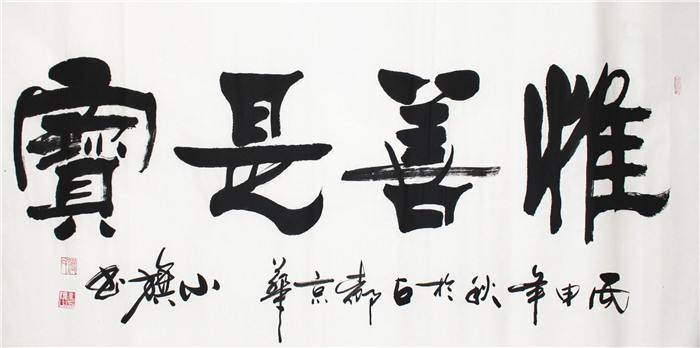 惟善是寶
丙申年秋於古都京華 小旗书